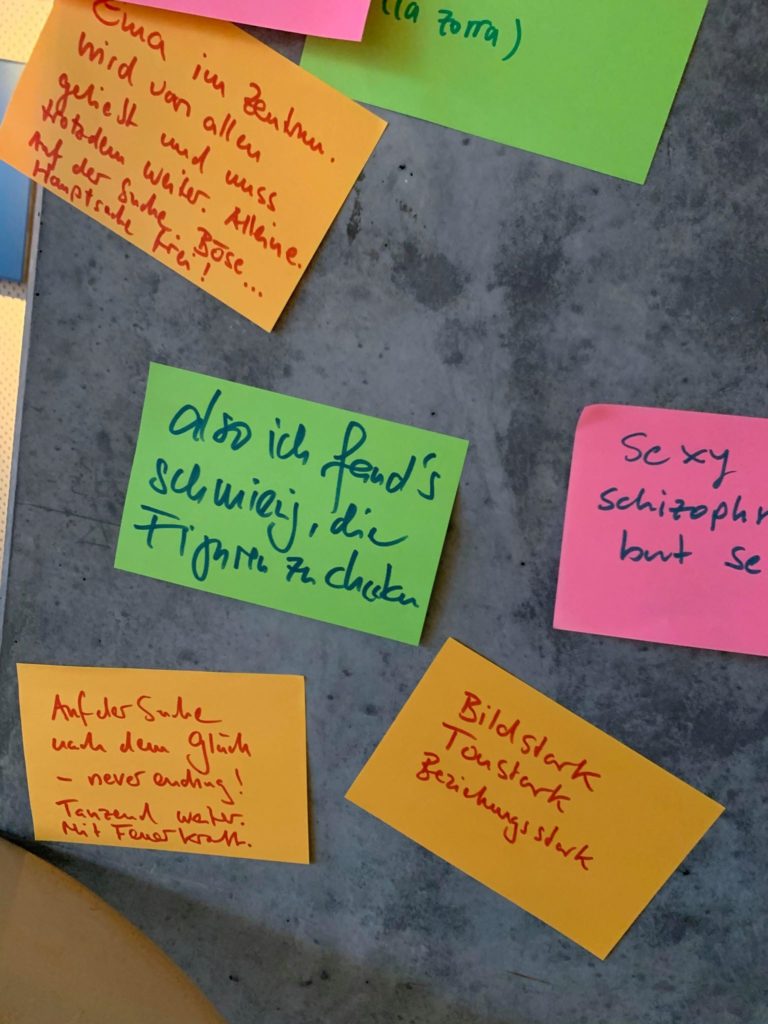 (la zorra)
Ema im Zentrum.
wird von allen
geliebt und muss
trotzdem weiter. Alleine.
Auf der Suche. Böse ...
Hauptsache frei!
also ich fand's
schwierig, die
Figuren zu checken
Sexy
schizophr
but se
Auf der Suche
nach dem Glück
– never ending!
Tanzend weiter.
Mit Feuerkraft.
Bildstark
Tonstark
Beziehungsstark